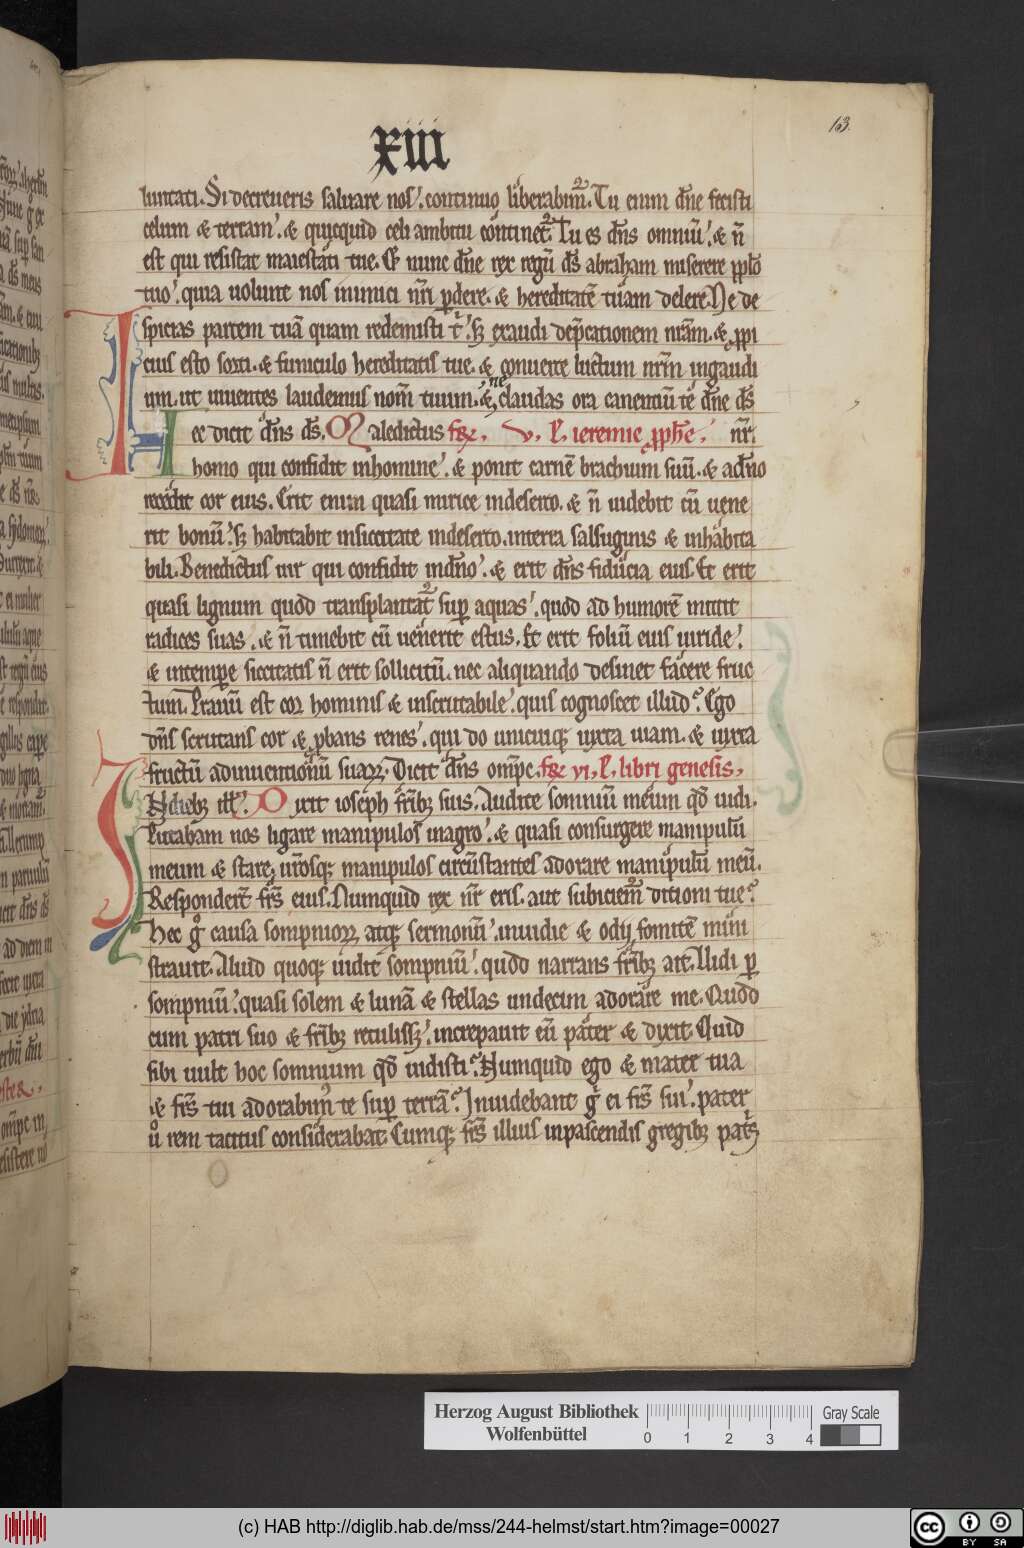 xiii
13.
luntati. Si decreueris saluare nos. continuo liberabimur. Tu enim dñe fecisti
celum & terram. & quicquid celi ambitu continetur. Tu es dñs omniũ. & ñ
est qui resistat maiestati tue. Et nunc dñe rex regũ ds̃ abraham miserere pplõ
tuo. quia uolunt nos inimici nr̃i pdere. & hereditatẽ tuam delere. Ne de
spicias partem tuã quam redemisti t'. sꝫ exaudi dep̃cationem nrãm. & ꝓpi
cius esto sorti. & funiculo hereditatis tue. & conuerte luctum nrm̃ ingaudi
um. ut uiuentes laudemus nom̃ tuum. & ne claudas ora canentiũ te dñe ds̃
Hec dicit dñs ds̃. Maledictus fer. v. L. ieremie ꝓph̃e. nr̃.
homo qui confidit inhomine. & ponit carnẽ brachium suũ. & adño
recedit cor eius. Erit enim quasi mirice indeserto. & ñ uidebit cũ uene
rit bonũ. sꝫ habitabit insiccitate indeserto. interra salsuginis & inhabita
bili. Benedictus uir qui confidit indño. & erit dñs fiducia eius. Et erit
quasi lignum quod transplantatur sup aquas. quod ad humorẽ mittit
radices suas. & ñ timebit cũ uenerit estus. Et erit foliũ eius uiride.
& intempe siccitatis ñ erit sollicitũ. nec aliquando desinet facere fruc
tum. Prauũ est cor hominis & inscrutabile. quis cognoscet illud? Ego
dñs scrutans cor & ꝓbans renes. qui do unicuiqꝫ iuxta uiam. & iuxta
fructũ adinuentionũ suaꝝ. Dicit dñs omp̃c. fer vi. L. libri genesis.
INdiebꝫ ill'. Dixit ioseph fr̃ibꝫ suis. Audite somniũ meum qd̃ uidi.
Putabam nos ligare manipulos inagro. & quasi consurgere manipulũ
meum & stare. ur̃osqꝫ manipulos circũstantes adorare manipulũ meũ.
Respondert̃ frs̃ eius. Numquid rex nr̃ eris. aut subiciemur ditioni tue?
Hec g° causa sompnioꝝ atqꝫ sermonũ. inuidie & odij fomitẽ mini
strauit. Aliud quoqꝫ uidit sompniũ. quod narrans fr̃ibꝫ ait. Uidi p
sompniũ. quasi solem & lunã & stellas undecim adorare me. Quod
cum patri suo & fr̃ibꝫ retulissꝫ. increpauit eũ pater & dixit. Quid
sibi uult hoc somnium qd̃ uidisti? Numquid ego & mater tua
& frs̃ tui adorabim' te sup terrã? Inuidebant g° ei frs̃ sui. pater
u° rem tacitus considerabat. Cumqꝫ frs̃ illius inpascendis gregibꝫ pat's
Herzog August Bibliothek
Wolfenbüttel
0 1 2 3 4
Gray Scale
(c) HAB http://diglib.hab.de/mss/244-helmst/start.htm?image=00027
cc BY SA